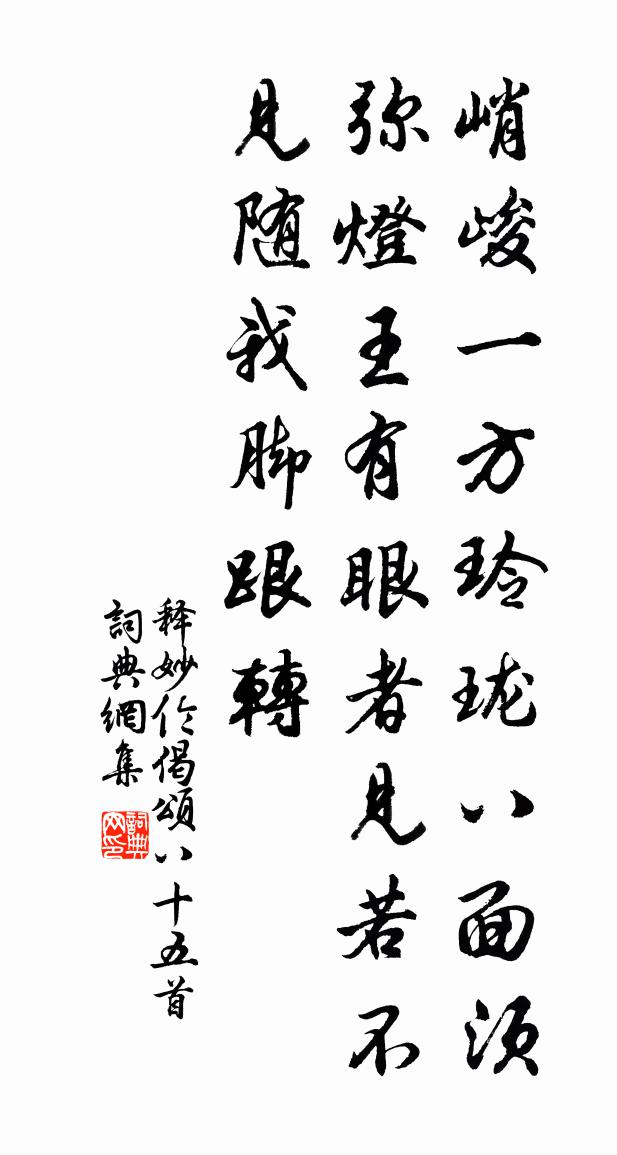 峭峻一方玲珑八面须
弥燈王有眼者見若不
見随我脚跟轉
释妙伦偈頌八十五首
詞典網集
詞典网印